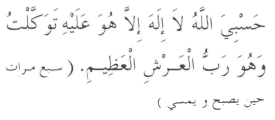 حَسْبِيَ اللَّهُ لاَ إِلَهَ إِلاَّ هُوَ عَلَيْهِ تَوَكَّلْتُ
وَهُوَ رَبُّ الْعَرْشِ الْعَظِيمِ. ( سبع مرات
حين يصبح و يمسي )